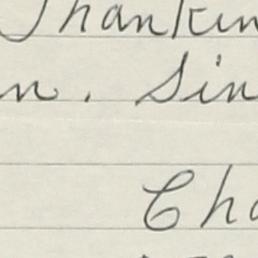 Thankin
n. Sin
Cha